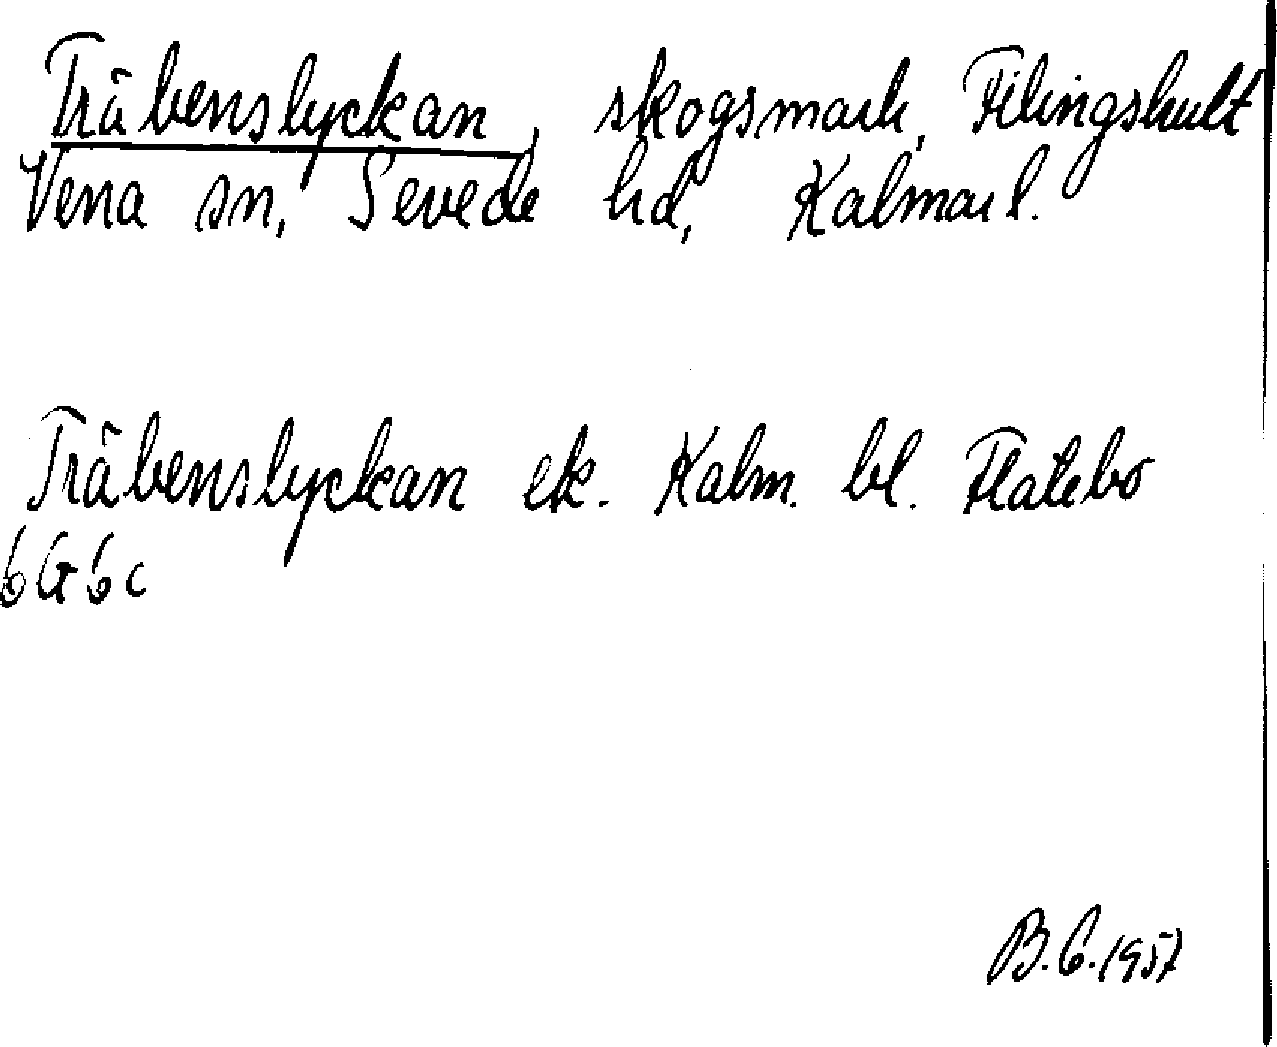 Träbenslyckan, skogsmark, Filingshult
Vena sn, Sevede hd, Kalmar l.
Träbenslyckan ek. Kalm. bl. Flatebo
6G6c
B.C. 1957